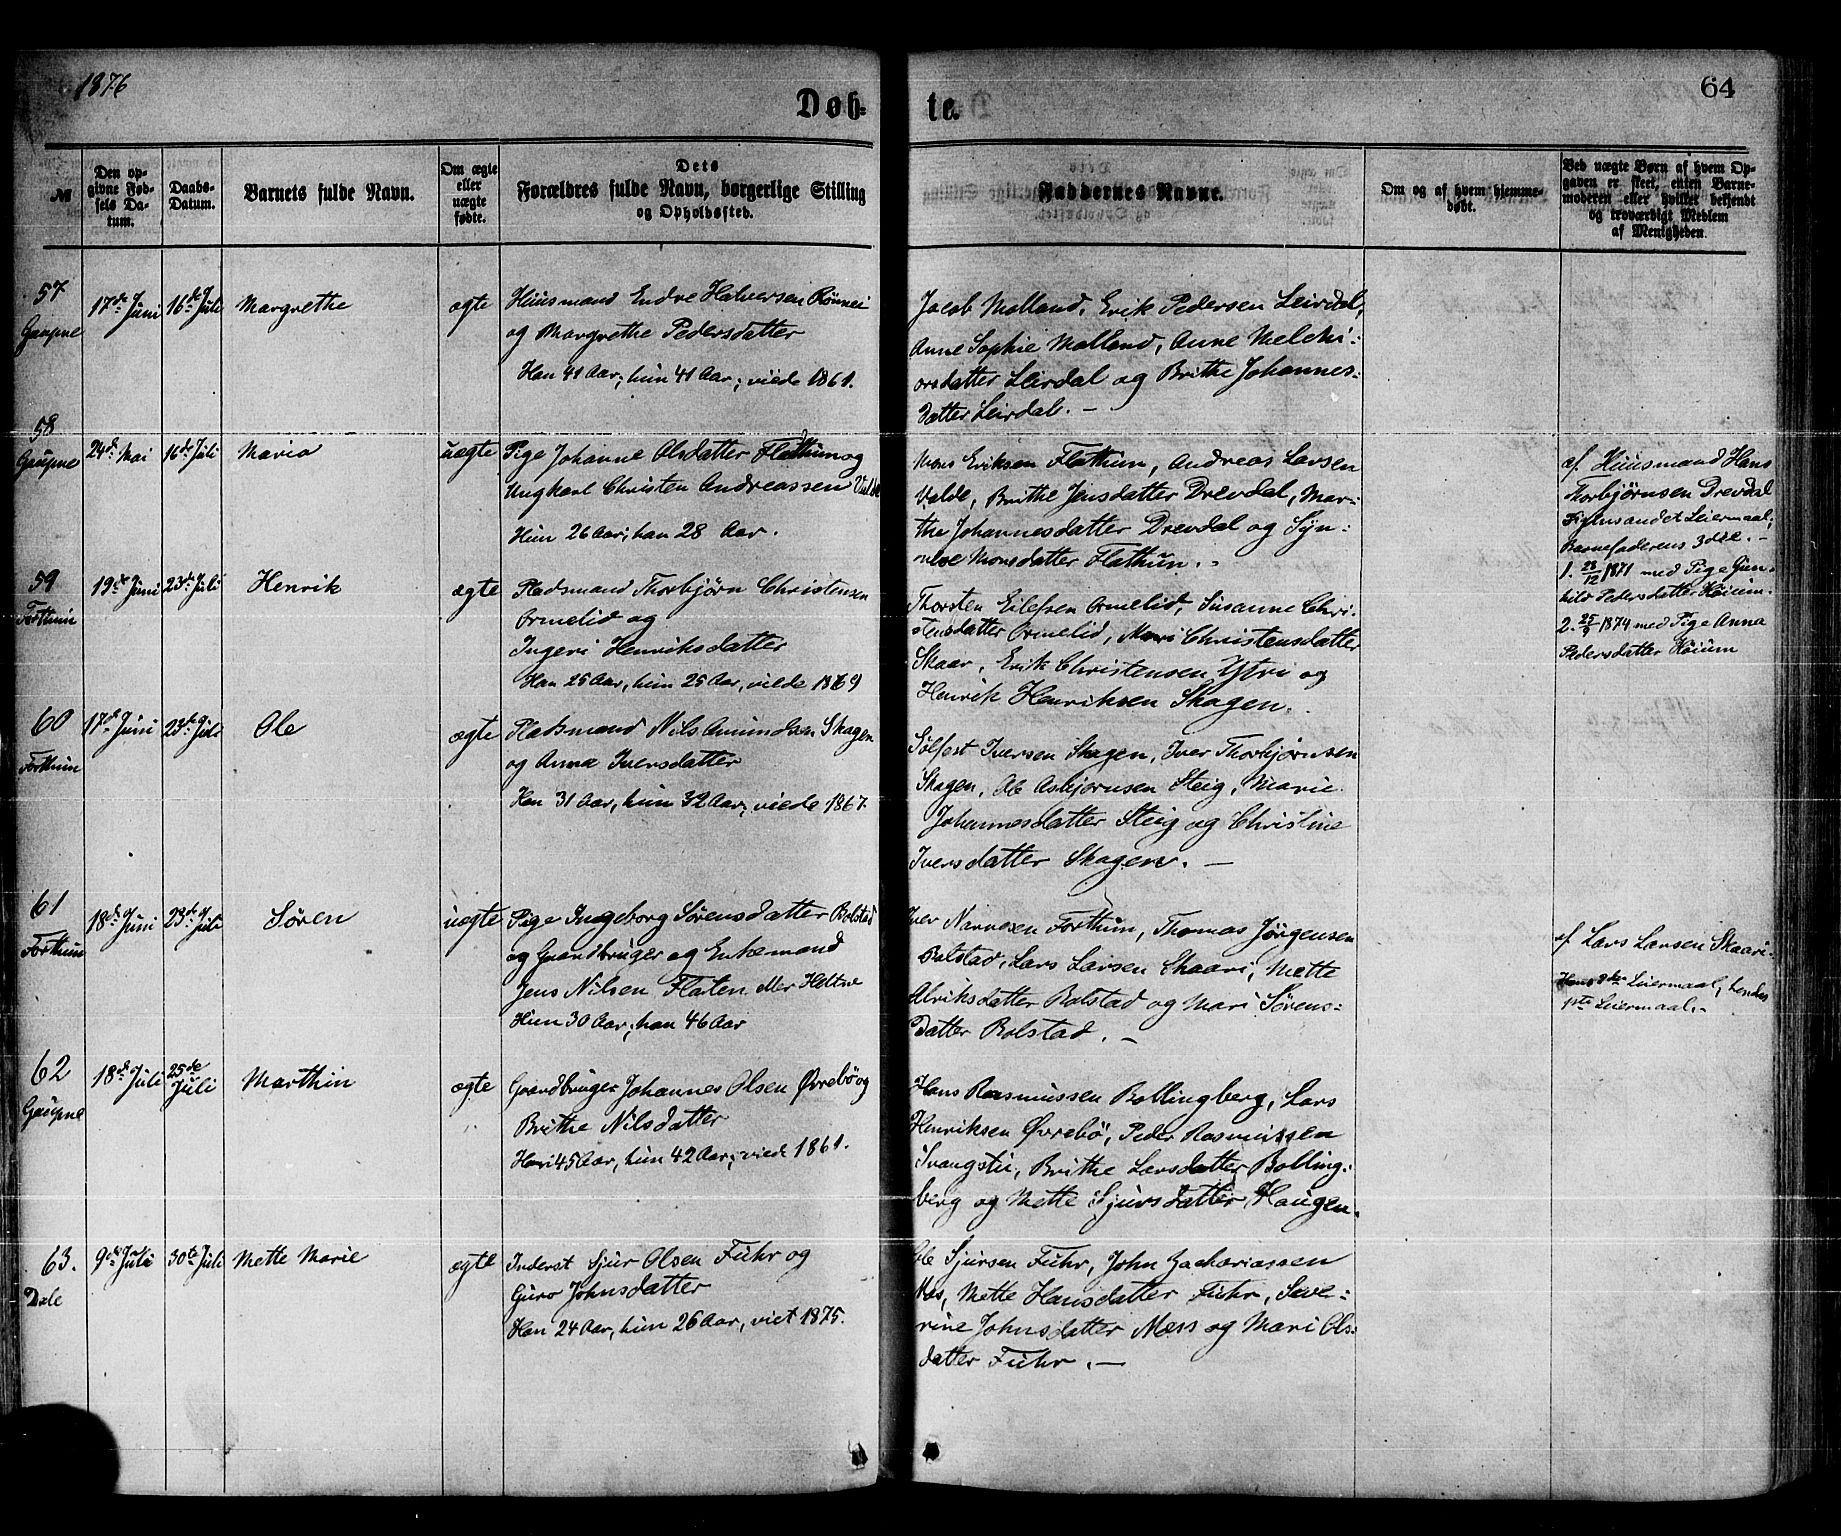 1876
64
Døb-
te.
№
Den op-
givne Fød-
sels Da-
tum.
Daabs-
Datum.
Barnets fulde Navn.
Om ægte
eller
uægte
fødte.
Dets
Forældres fulde Navn, borgerlige Stilling
og Opholdssted.
Faddernes Navne.
Om og af hvem hjemme-
døbt.
Ved uægte Børn af hvem Op-
gaven er skeet, enten Barne-
moderen eller hvilket bekjendt
og troværdigt Medlem
af Menigheden.
57
Gaupne
17de Juni
16de Juli
Margrethe
ægte
Huusmand Endre Halversen Rønnei
og Margrethe Pedersdatter
Han 41 Aar; hun 41 Aar; viede 1861.
Jacob Molland, Erik Pedersen Leirdal,
Anne Sophie Molland, Anne Melchi-
orsdatter Leirdal og Brithe Johannes-
datter Leirdal. -
58
Gaupne
24de Mai
16de Juli
Maria
uægte
Pige Johanne Olsdatter Flathum og
Ungkarl Christen Andreassen Valde
Hun 26 Aar; han 28 Aar.
Mons Eriksen Flathum, Andreas Larsen
Valde, Brithe Jensdatter Drevdal, Mar-
the Johannesdatter Drevdal og Syn-
neve Monsdatter Flathun. -
af Huusmand Hans
Thorbjørnsen Drevdal
Pigens andet Leiermaal;
Barnefaderens 3die. -
1. 23/12 1871 med Pige Gun-
hild Pedersdatter Høium.
2. 25/9 1874 med Pige Anna
Pedersdatter Høium
59
Forthun
19de Juni
23de Juli
Henrik
ægte
Pladsmand Thorbjørn Christensen
Ormelid og
Ingeri Henriksdatter
Han 25 Aar, hun 25 Aar, viede 1869
Thorsten Eilefsen Ormelid, Susanne Chri-
stensdatter Ormelid, Mari Christensdatter
Skaar, Erik Christensen Yttri og
Henrik Henriksen Skagen.
60
Forthun
17de Juni
23de Juli
Ole
ægte
Pladsmand Nils Amundsen Skagen
og Anna Iversdatter
Han 31 Aar, hun 32 Aar; viede 1867.
Solfest Iversen Skagen, Iver Thorbjørnsen
Skagen, Ole Asbjørnsen Steig, Marie
Johannesdatter Steig og Christine
Iversdatter Skagen. -
61
Forthun
18de Juni
23de Juli
Søren
uægte
Pige Ingeborg Sørensdatter Bolstad
og Gaardbruger og Enkemand
Jens Nilsen Flaten
Hun 30 Aar; han 46 Aar
Iver Narvesen Forthun, Thomas Jørgensen
Bolstad, Lars Larsen Skaari, Mette
Alriksdatter Bolstad og Mari Sørens-
datter Bolstad. -
af Lars Larsen Skaari.
Leiermaal, hendes
1ste Leiermaal. -
62
Gaupne
18de Juli
25de
Juli
Marthin
ægte
Gaardbruger Johannes Olsen Øvrebø og
Brithe Nilsdatter
Han 45 Aar, hun 42 Aar; viede 1861.
Hans Rasmussen Bollingberg, Lars
Henriksen Øvrebø, Peder Rasmussen
Brithe Larsdatter Bolling-
berg og Mette Sjursdatter Haugen.
63.
Dale
9de Juli
30te Juli
Mette Marie
ægte
Inderst Sjur Olsen Fuhr og
Guro Johnsdatter
Han 24 Aar, hun 26 Aar, viet 1875.
Ole Sjursen Fuhr, John Zachariassen
Næs, Mette Hansdatter Fuhr, Seve-
rine Johnsdatter Næss og Mari Ols-
datter Fuhr. -